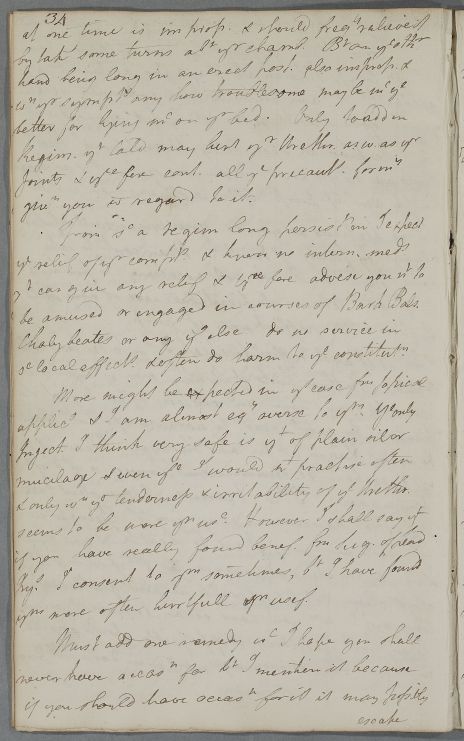 34
at one time is improp. & should freqly relieve it
by takg some turns abt yr chamb. Bt on ye othr
hand being long in an erect post. also improp. &
wn yr sympts any how troublesome may be in ye
better for lying in on yr bed. Only to add in
Regim. yt cold may hurt yr Urethr. as w. as yr
Joints & yrfore cont. all ye precaut. formly
given you wt regard to it.
From sc a regim long persistd in I expect
ye relief of yr compts & know no intern. meds
yt can give any relief & yrefore advise you nt to
be amused or engaged in courses of Bark Bals.
Chalybeates or any yg else do no service in
sc local affects & often do harm to ye constitutn.
More might be expected in yr case fm topical
applics & I am almost eqly averse to ym. ye only
Inject. I think very safe is yt of plain oil or
mucilage & even yse I would nt practise often
& only wn ye tenderness & irritability of ye Urethr.
seems to be more yn usl. However I shall say yt
if you have really found benef. fm Sug. of lead
Injs. I consent to ym sometimes, bt I have found
ym more often hurtfull yn usef.
Must add one remedy wc I hope you shall
never have occasn for bt I mention it because
if you should have occasn for it it may possibly
escape